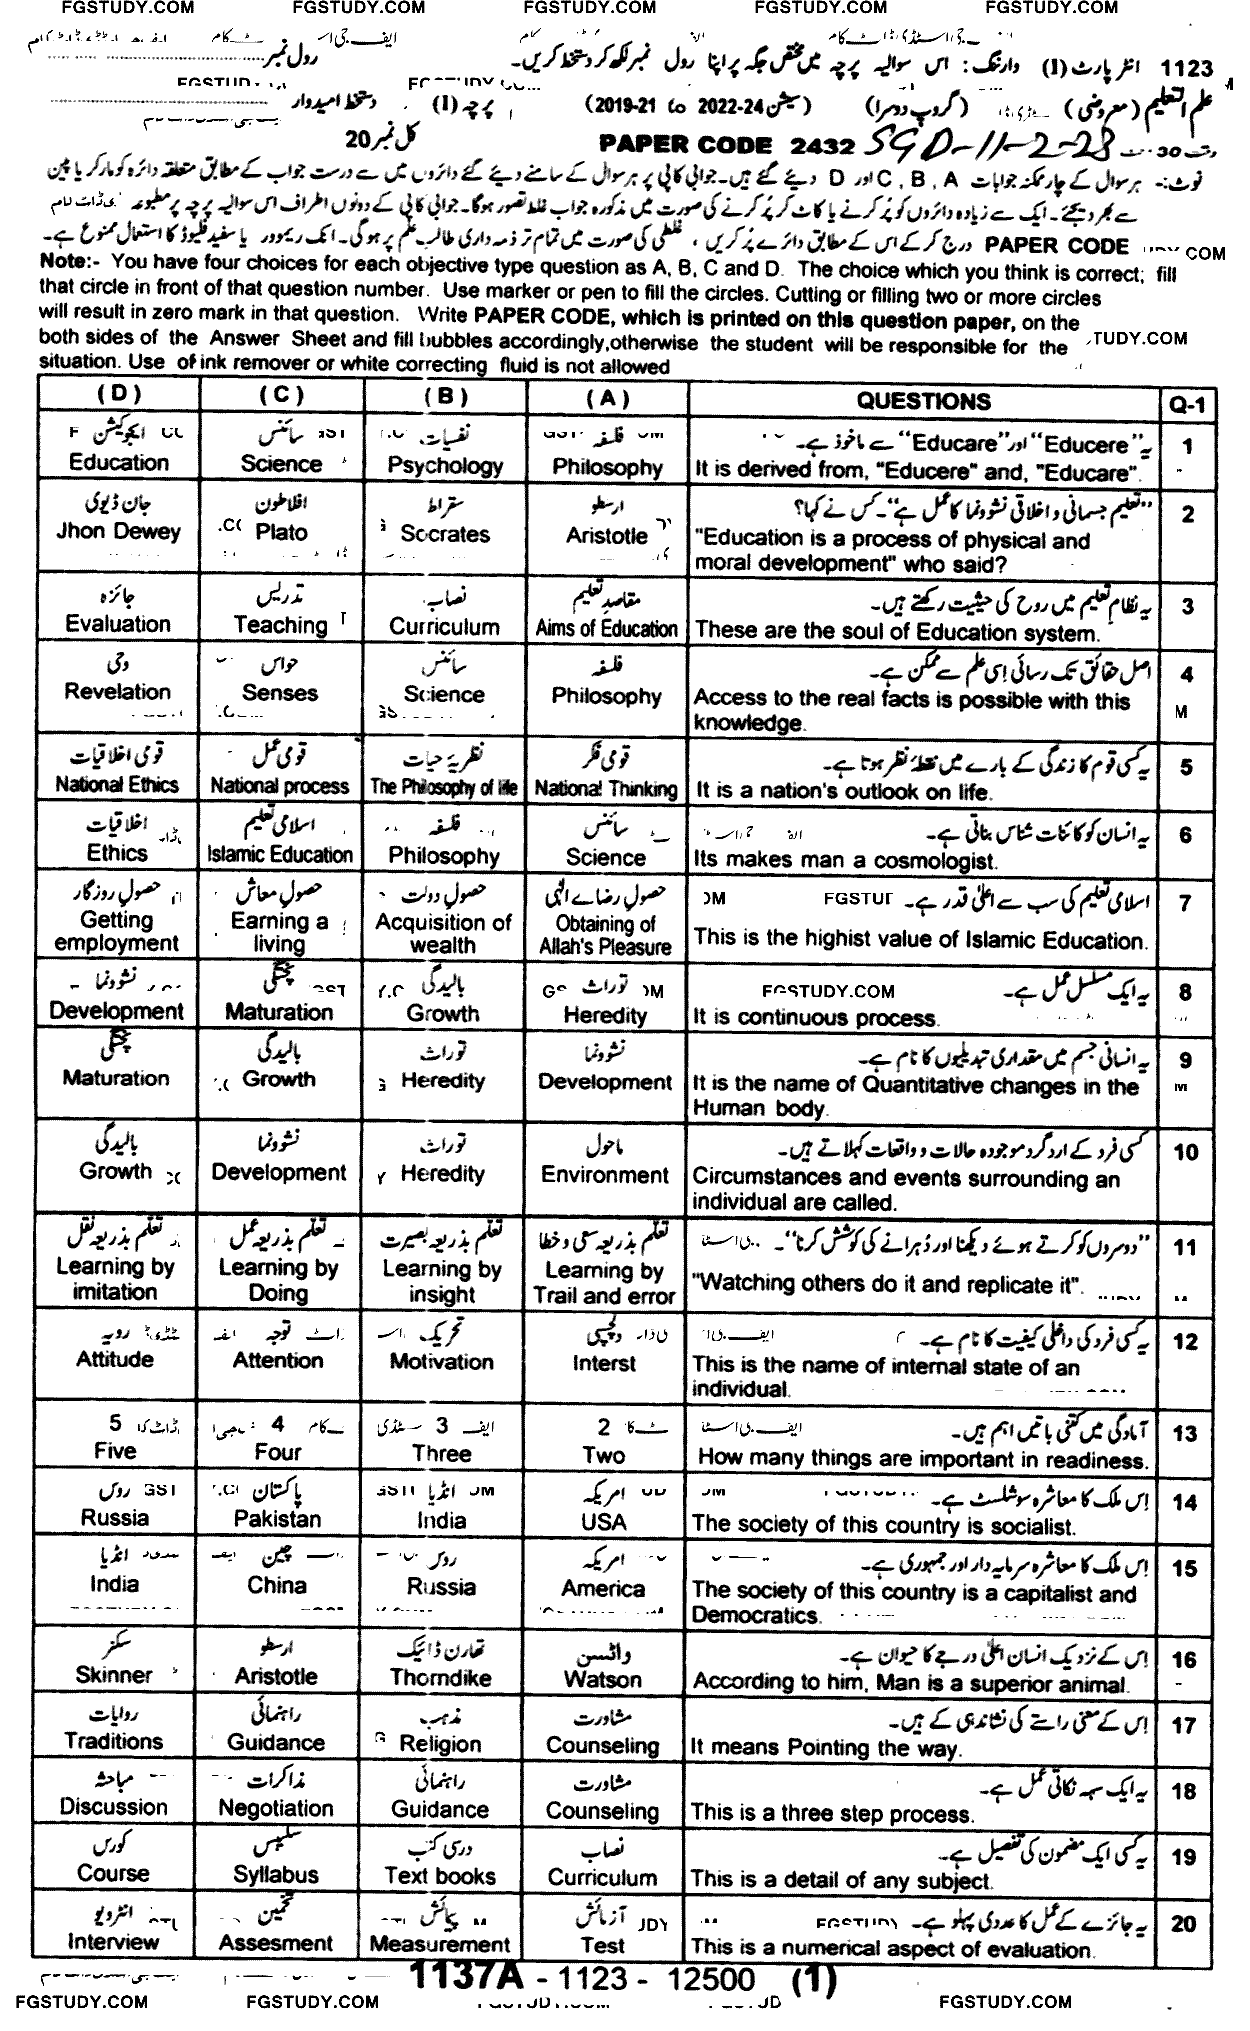 FGSTUDY.COM FGSTUDY.COM FGSTUDY.COM FGSTUDY.COM FGSTUDY.COM
رول نمبر
1123 انٹر پارٹ (I) وارننگ: اس سوالیہ پرچہ میں مختص جگہ پر اپنا رول نمبر لکھ کر دستخط کریں۔
علم التعلیم (معروضی) (گروپ دوسرا) (سیشن 2022-24 تا 2019-21) پرچہ (I) دستخط امیدوار
وقت 30 PAPER CODE 2432 SGD-11-2-23 کل نمبر 20
نوٹ:- ہر سوال کے چار ممکنہ جوابات A , B , C اور D دیئے گئے ہیں۔ جوابی کاپی پر ہر سوال کے سامنے دیئے گئے دائروں میں سے درست جواب کے مطابق متعلقہ دائرہ کو مارکر یا پین
سے بھر دیجئے۔ ایک سے زیادہ دائروں کو پُر کرنے یا کاٹ کر پُر کرنے کی صورت میں مذکورہ جواب غلط تصور ہوگا۔ جوابی کاپی کے دونوں اطراف اس سوالیہ پرچہ پر مطبوعہ
PAPER CODE درج کر کے اس کے مطابق دائرے پُر کریں، غلطی کی صورت میں تمام تر ذمہ داری طالب علم پر ہوگی۔ انک ریموور یا سفید فلیوڈ کا استعمال ممنوع ہے۔
Note:- You have four choices for each objective type question as A, B, C and D. The choice which you think is correct; fill
that circle in front of that question number. Use marker or pen to fill the circles. Cutting or filling two or more circles
will result in zero mark in that question. Write PAPER CODE, which is printed on this question paper, on the
both sides of the Answer Sheet and fill bubbles accordingly,otherwise the student will be responsible for the
situation. Use of ink remover or white correcting fluid is not allowed
(D) (C) (B) (A) QUESTIONS Q-1
ایجوکیشن سائنس نفسیات فلسفہ یہ "Educere" اور "Educare" سے ماخوذ ہے۔ 1
Education Science Psychology Philosophy It is derived from, "Educere" and, "Educare".
جان ڈیوی افلاطون سقراط ارسطو "تعلیم جسمانی و اخلاقی نشوونما کا عمل ہے"۔ کس نے کہا؟ 2
Jhon Dewey Plato Socrates Aristotle "Education is a process of physical and
moral development" who said?
جائزہ تدریس نصاب مقاصدِ تعلیم یہ نظام تعلیم میں روح کی حیثیت رکھتے ہیں۔ 3
Evaluation Teaching Curriculum Aims of Education These are the soul of Education system.
وحی حواس سائنس فلسفہ اصل حقائق تک رسائی اِسی علم سے ممکن ہے۔ 4
Revelation Senses Science Philosophy Access to the real facts is possible with this
knowledge.
قومی اخلاقیات قومی عمل نظریۂ حیات قومی فکر یہ کسی قوم کا زندگی کے بارے میں نقطۂ نظر ہوتا ہے۔ 5
National Ethics National process The Philosophy of life National Thinking It is a nation's outlook on life.
اخلاقیات اسلامی تعلیم فلسفہ سائنس یہ انسان کو کائنات شناس بناتی ہے۔ 6
Ethics Islamic Education Philosophy Science Its makes man a cosmologist.
حصولِ روزگار حصولِ معاش حصولِ دولت حصولِ رضائے الٰہی اسلامی تعلیم کی سب سے اعلیٰ قدر ہے۔ 7
Getting employment Earning a living Acquisition of wealth Obtaining of Allah's Pleasure This is the highist value of Islamic Education.
نشوونما پختگی بالیدگی توراث یہ ایک مسلسل عمل ہے۔ FGSTUDY.COM 8
Development Maturation Growth Heredity It is continuous process.
پختگی بالیدگی توراث نشوونما یہ انسانی جسم میں مقداری تبدیلیوں کا نام ہے۔ 9
Maturation Growth Heredity Development It is the name of Quantitative changes in the
Human body.
بالیدگی نشوونما توراث ماحول کسی فرد کے اردگرد موجودہ حالات و واقعات کہلاتے ہیں۔ 10
Growth Development Heredity Environment Circumstances and events surrounding an
individual are called.
تعلم بذریعہ نقل تعلم بذریعہ عمل تعلم بذریعہ بصیرت تعلم بذریعہ سعی و خطا "دوسروں کو کرتے ہوئے دیکھنا اور دُہرانے کی کوشش کرنا"۔ 11
Learning by imitation Learning by Doing Learning by insight Learning by Trail and error "Watching others do it and replicate it".
رویہ توجہ تحریک دلچسپی یہ کسی فرد کی داخلی کیفیت کا نام ہے۔ 12
Attitude Attention Motivation Interst This is the name of internal state of an
individual.
5 4 3 2 آمادگی میں کتنی باتیں اہم ہیں۔ 13
Five Four Three Two How many things are important in readiness.
روس پاکستان انڈیا امریکہ اِس ملک کا معاشرہ سوشلسٹ ہے۔ 14
Russia Pakistan India USA The society of this country is socialist.
انڈیا چین روس امریکہ اِس ملک کا معاشرہ سرمایہ دار اور جمہوری ہے۔ 15
India China Russia America The society of this country is a capitalist and
Democratics.
سکنر ارسطو تھارن ڈائیک واٹسن اِس کے نزدیک انسان اعلیٰ درجے کا حیوان ہے۔ 16
Skinner Aristotle Thorndike Watson According to him, Man is a superior animal.
روایات راہنمائی مذہب مشاورت اِس کے معنی راستے کی نشاندہی کے ہیں۔ 17
Traditions Guidance Religion Counseling It means Pointing the way.
مباحثہ مذاکرات راہنمائی مشاورت یہ ایک سہ نکاتی عمل ہے۔ 18
Discussion Negotiation Guidance Counseling This is a three step process.
کورس سلیبس درسی کتب نصاب یہ کسی ایک مضمون کی تفصیل ہے۔ 19
Course Syllabus Text books Curriculum This is a detail of any subject.
انٹرویو تخمین پیمائش آزمائش یہ جائزے کے عمل کا عددی پہلو ہے۔ 20
Interview Assesment Measurement Test This is a numerical aspect of evaluation.
1137A - 1123 - 12500 (1)
FGSTUDY.COM FGSTUDY.COM FGSTUDY.COM